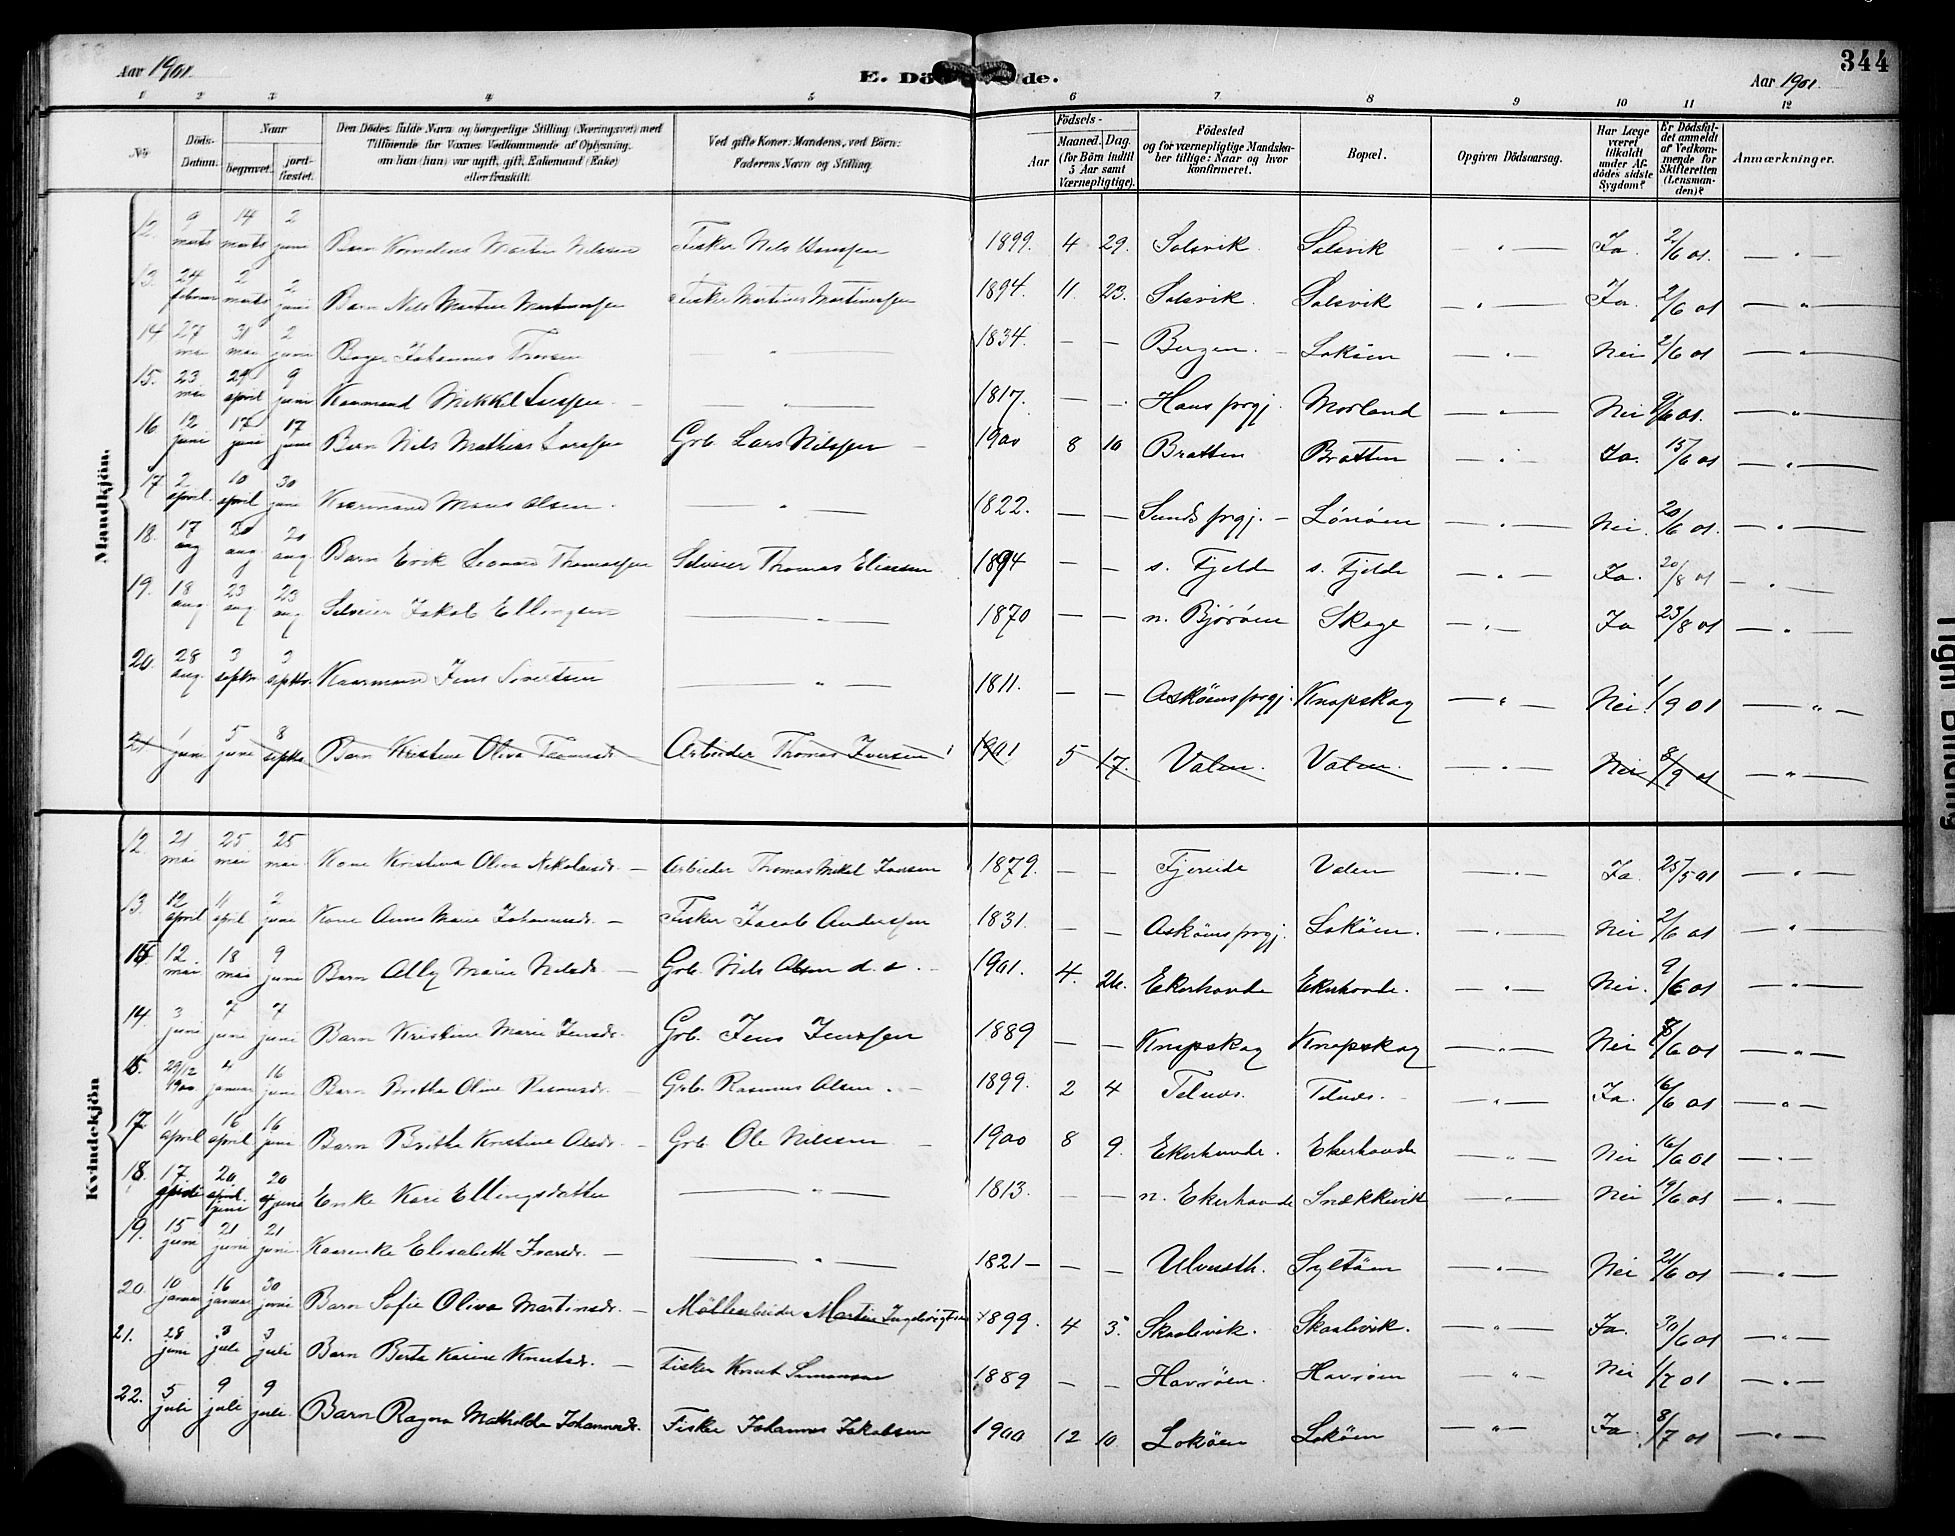 344
Aar 1901.
E. Dö de.
Aar 1901.
1 2 3 4 5 6 7 8 9 10 11 12
No
Döds-Datum.
Naar begravet. jordfæstet.
Den Dödes fulde Navn og borgerlige Stilling (Næringsvei) med Tilföiende for Voxnes Vedkommende af Oplysning, om han (hun) var ugift, gift, Enkemand (Enke) eller fraskilt.
Ved gifte Koner: Mandens, ved Börn: Faderens Navn og Stilling.
Födsels- Aar Maaned. Dag. (for Börn indtil 5 Aar samt Værnepligtige).
Födested og for værnepligtige Mandskaber tillige: Naar og hvor konfirmeret.
Bopæl.
Opgiven Dödsaarsag.
Har Læge været tilkaldt under Afdödes sidste Sygdom?
Er Dödsfaldet anmeldt af Vedkommende for Skifteretten (Lensmanden)?
Anmærkninger.
Mandkjön.
12. 9 marts 14 marts 2 juni Barn Kornelius Martin Nilssen Fisker Nils Hanssen 1899. 4 29. Solsvik Solsvik — " — Ja. 2/6 01. — " —
13. 24 februar 2 marts 2 juni Barn Nils Martin Martinussen Fisker Martinus Martinussen 1894. 11. 23. Solsvik. Solsvik — " — Ja. 2/6 01 — " —
14 27 mai 31 mai 2 juni Bager Johannes Thorsen — " — 1834. — — Bergen. — Loköen — " — Nei 2/6 01 — " —
15. 23 mai 29 april 9 juni Kaarmand Mikkel Larssen — " — 1817. — — Haus prgj. Morland — " — Nei 9/6 01. — " —
16. 12 juni 17 juni 17 juni Barn Nils Mathias Larssen Grb. Lars Nilssen — 1900 8 10 Bratten Bratten — " — Ja. 15/6 01 — " —
17. 2 april. 10 april 30 juni Kaarmand Mons Olsen. — " — 1822. — — Sunds prgj. — Lönöen — " — Nei. 20/6 01. — " —
18. 17 aug 20 aug 20 aug. Barn Erik Leonard Thomassen Selveier Thomas Eliassen 1894 — — s. Fjelde s. Fjelde — " — Ja. 20/8 01 — " —
19. 18 aug. 23 aug 23 aug Selveier Jakob Ellingsen — " — 1870 — — n. Björöen Skage — " — Ja 23/8 01 — " —
20. 28 aug. 3 septbr. 3 septbr. Kaarmand Jens Sivertsen — " — 1811. — — Asköens prgj. Knapskog — " — Nei. 1/9 01 — " —
21 1 juni 5 juni 8 septbr Barn Kristine Oliva Thomasdr. Arbeider Thomas Iversen 1901 5 17. Valen. Valen. — " — Nei 8/9 01 — " —
Kvindekjön
12. 21 mai 25 mai 25 mai Kone Kristina Oliva Nikolaisdr. — Arbeider Thomas Mikal Iversen 1879. — — Fjereide Valen — " — Ja. 25/5 01 — " —
13. 12 april 11 april 2 juni Kone Anna Marie Johannesdr. — Fisker Jacob Anderssen 1831. — — Asköens prgj. Loköen. — " — Nei 2/6 01 — " —
12. mai 18 mai 9 juni Barn Ally Marie Nilsdr. — Grb. Nils Olsen d. s. — 1901. 4. 26. Ekerhovde Ekerhovde. — " — Nei. 9/6 01 — " —
14. 3 juni 7 juni 7 juni Barn Kristine Marie Jensdr. Grb. Jens Jenssen 1889 — — Knapskog Knapskog — " — Nei 8/6 01 — " —
29/12 1900 4 januar 16 juni Barn Brita Oline Rasmusdr. — Grb. Rasmus Olsen. — 1899. 2 4 Telnes. Telnes. — " — Ja. 16/6 01 — " —
17. 11 april 16 april 16 juni Barn Britha Kristine Olsdr. — Grb. Ole Nilssen. — 1900 8 9. Ekerhovde. Ekerhovde — " — Nei 16/6 01 — " —
18. 17. april 20 april 20 juni Enke Kari Ellingsdatter — " — 1813. — — n. Ekerhovde Snekkevik — " — Nei 19/6 01 — " —
19. 15 juni 21 juni 21 juni. Kaarenke Elisabeth Ivarsdr. — — " — 1821 — — — Ulveseth. Syltöen — " — Nei 21/6 01 — " —
20. 10 januar 16 januar 30 juni Barn Sofie Oliva Martinsdr. — Möllearbeider Martin Ingebrigtsen 1899. 4 5. Skaalevik. Skaalevik. — " — Ja. 30/6 01 — " —
21. 28 juni 3 juli 3 juli Barn Berta Karine Knutsdr. — Fisker Knut Simonsen 1889 — — Havröen. Havröen — " — Nei 1/7 01 — " —
22. 5 juli 9 juli 9 juli. Barn Ragna Mathilda Johannesdr. Fisker Johannes Jakobsen 1900 12 10 Loköen Loköen — " — Ja. 8/7 01 — " —
Tight Binding